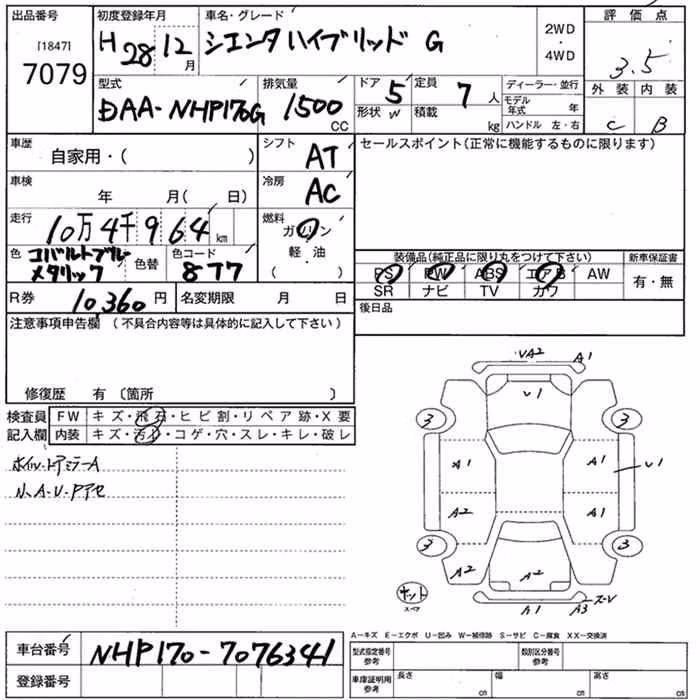 出品番号 初度登録年月 車名・グレード 2WD・4WD 評価点
[1847] 7079 H 28 12月 シエンタハイブリッド G 3.5
型式 排気量 ドア 定員 ディーラー・並行 外装 内装
DAA-NHP170G 1500 CC 5 7 人 モデル年式 年 C B
形状 W 積載 kg ハンドル 左・右
車歴 自家用・( ) シフト AT セールスポイント(正常に機能するものに限ります)
車検 年 月( 日) 冷房 AC
走行 10万4千964 km 燃料 ガソリン
軽・油
( )
色 コバルトブルーメタリック 色替 色コード 8T7
装備品(純正品に限り丸をつけて下さい) 新車保証書
PS PW ABS エアB AW 有・無
SR ナビ TV カワ
R券 10,360 円 名変期限 月 日 後日品
注意事項申告欄 (不具合内容等は具体的に記入して下さい)
修復歴 有 〔箇所 〕
検査員 FW キズ・飛石・ヒビ割・リペア跡・X要
記入欄 内装 キズ・汚れ・コゲ・穴・スレ・キレ・破レ
ホイル・ドアミラーA
小、A・U・Pアセ
A1
U1
3 3
A1 A1 U1
A2 A1
3 3
A2 A2
キット スペア
A1 A3
A-キズ E-エクボ U-凹み W-補修跡 S-サビ C-腐食 XX-交換済
車台番号 NHP170-7076341
型式指定番号 参考 類別区分番号 参考
登録番号
車庫証明用 参考 長さ cm 幅 cm 高さ cm